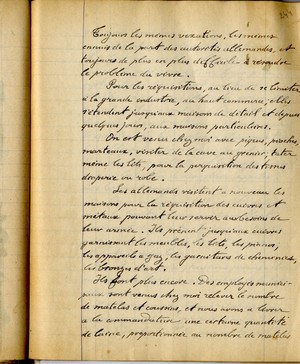 Toujours les mêmes vexations, les mêmes
ennuis de la part des autorités allemandes, et
toujours de plus en plus difficile à résoudre
le problème du vivre.
Pour les réquisitions, au lieu de se limiter
à la grande industrie, au haut commerce, elles
s'étendent jusqu'aux maisons de détail et depuis
quelques jours, aux maisons particulières.
On est venu chez moi avec pioches,
marteaux, visiter de la cave au grenier, tâter
même les lits, pour la perquisition des
cuivre ou
Les allemands visitent à nouveau les
maisons pour la réquisition des cuivres et
métaux pouvant leur servir aux besoins de
leur armée. Ils prennent jusqu'aux cuivres
garnissant les meubles, les lits, les pianos,
les appareils à gaz, les garnitures de cheminées,
les bronzes d'art.
Ils font plus encore. Des employés munici-
paux sont venus chez moi relever le nombre
de matelas et coussins, et nous avons à livrer
à la commandature une certaine quantité
de laine, proportionnée au nombre de matelas